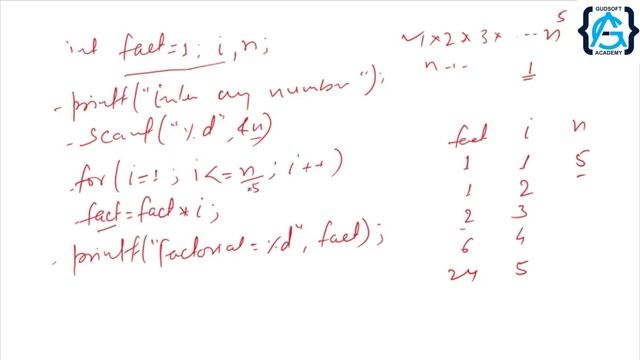 int fact=1; i,n;
printf("Enter any number");
scanf("%d",&n)
for(i=1; i<=n; i++)
5
fact=fact*i;
printf("factorial=%d", fact);
1×2×3×...n
5
n--
1
fact i n
1 1 5
1 2
2 3
6 4
24 5
GUDSOFT
ACADEMY